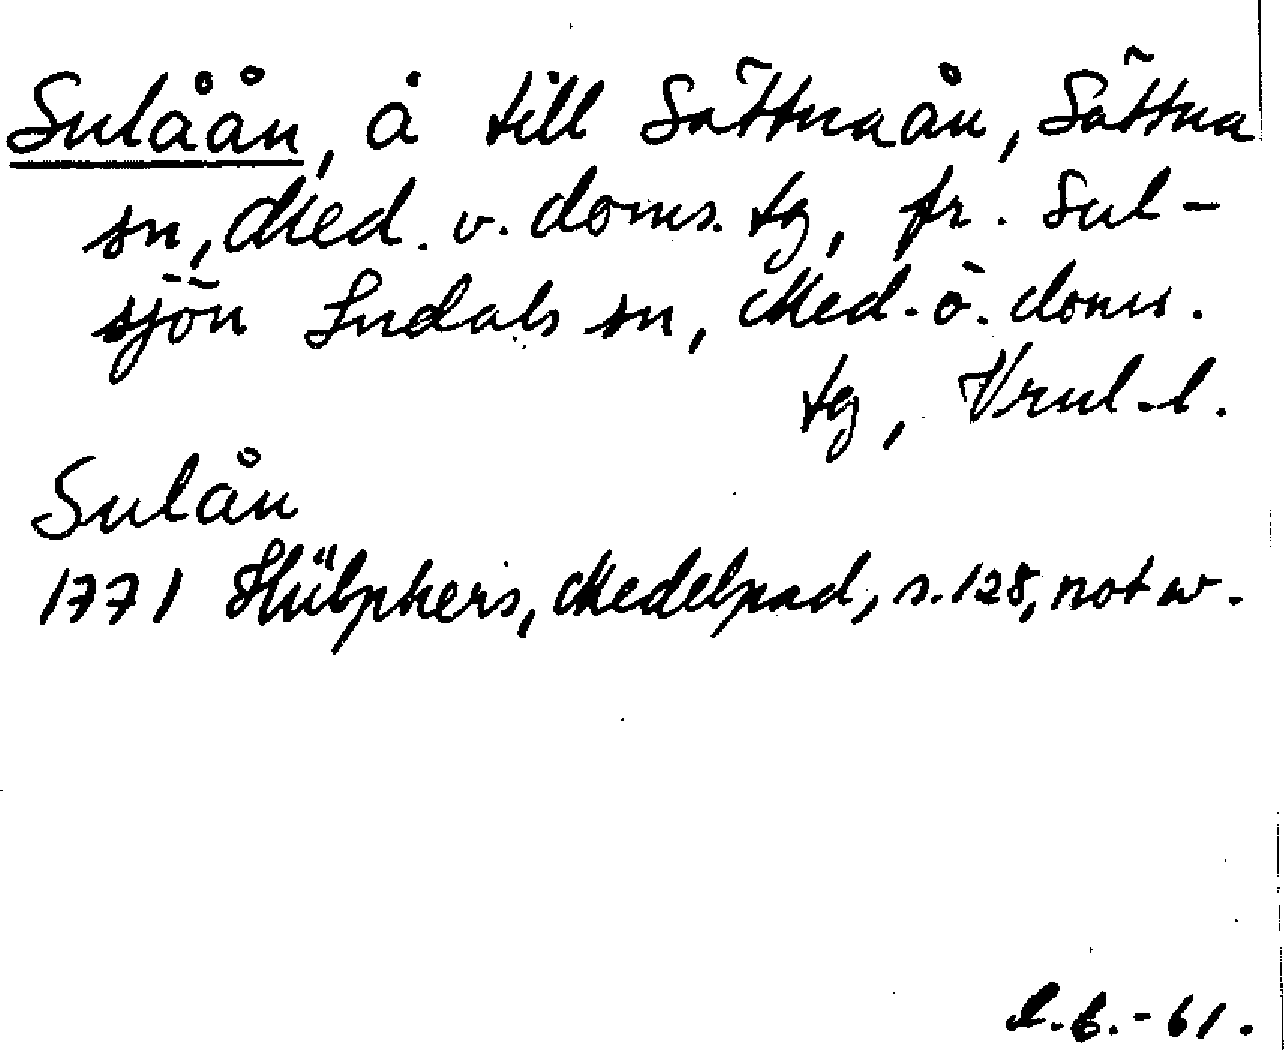 Sulåån, å till Sättnaån, Sättna
sn, Med. v. doms. tg, fr. Sul-
sjön Indals sn, Med. ö. doms.
tg, Vrul. l.
Sulån
1771 Hülphers, Medelpad, s. 128, not w.
L.B.-61.